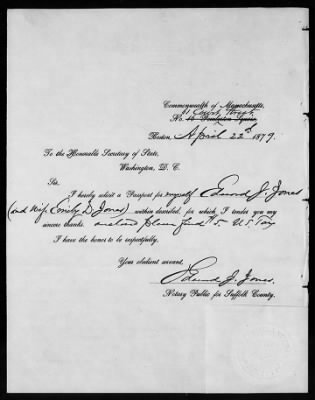 Commonwealth of Massachusetts,
Court Street
No. 
Boston, April 22d 1879.
To the Honorable Secretary of State,
Washington, D. C.
Sir,
I hereby solicit a Passport for myself Edward J. Jones
(and wife Emily D. Jones) within described, for which I tender you my
sincere thanks. enclosed please find $5 U.S. Tax
I have the honor to be respectfully,
Your obedient servant,
Edward J. Jones.
Notary Public for Suffolk County.